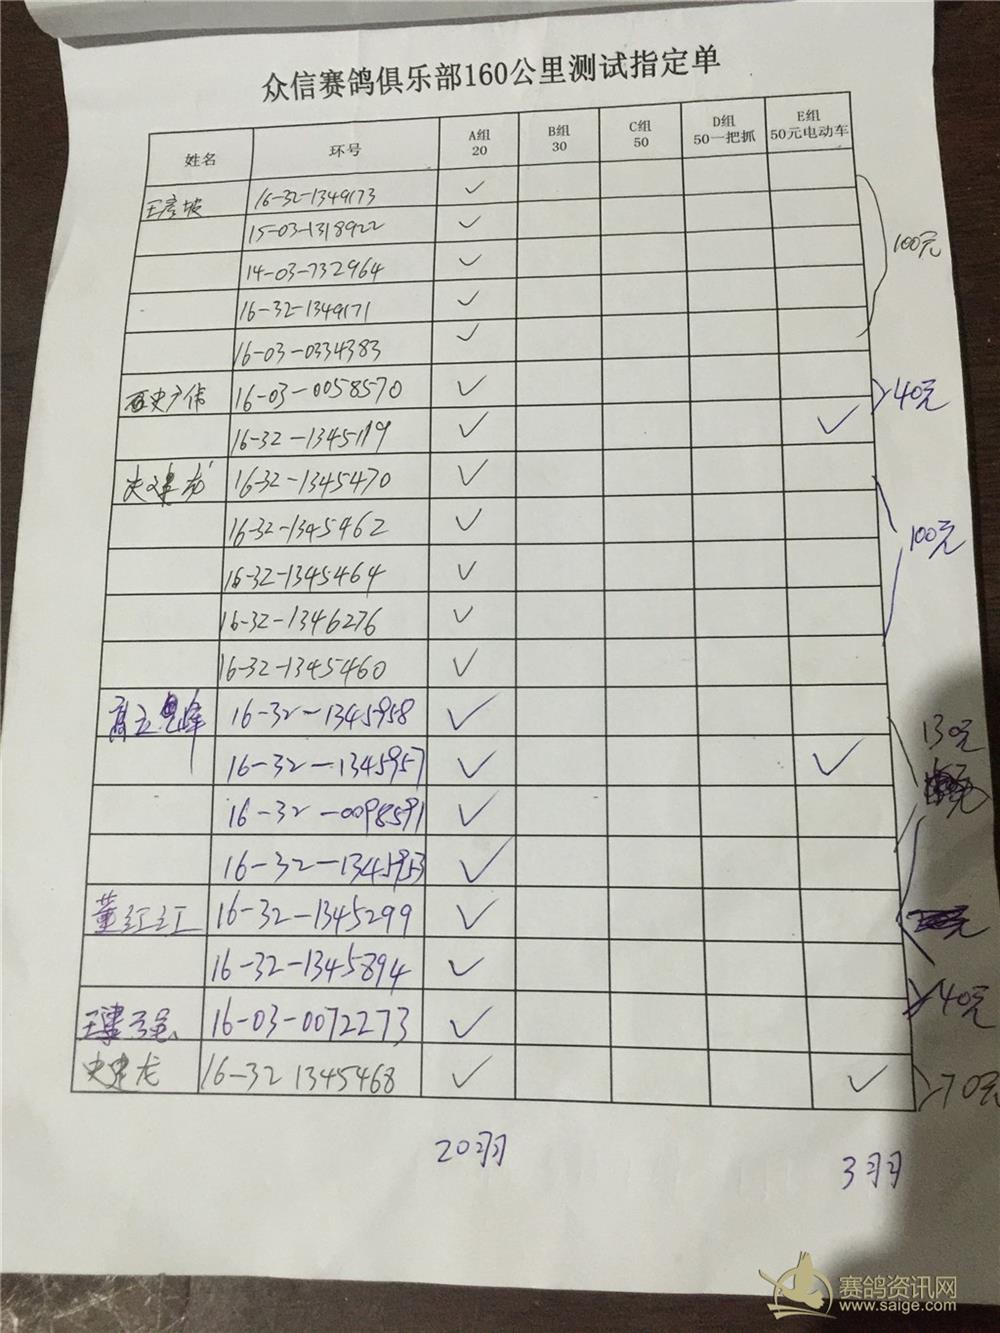 众信赛鸽俱乐部160公里测试指定单
姓名 环号 A组 20 B组 30 C组 50 D组 50一把抓 E组 50元电动车
王彦坡 16-32-1349173 ✓
15-03-1318922 ✓
14-03-732964 ✓
16-32-1349171 ✓
16-03-0334383 ✓
100元
史广伟 16-03-0058570 ✓
16-32-1345119 ✓ ✓
40元
史建龙 16-32-1345470 ✓
16-32-1345462 ✓
16-32-1345464 ✓
16-32-1346276 ✓
16-32-1345460 ✓
100元
16-32-1345958 ✓
16-32-1345957 ✓ ✓
16-32-0098591 ✓
16-32-1345953 ✓
130元
董红江 16-32-1345299 ✓
16-32-1345894 ✓
40元
16-03-0072273 ✓
史建龙 16-32 1345468 ✓ ✓
70元
20羽
3羽
赛鸽资讯网
www.saige.com